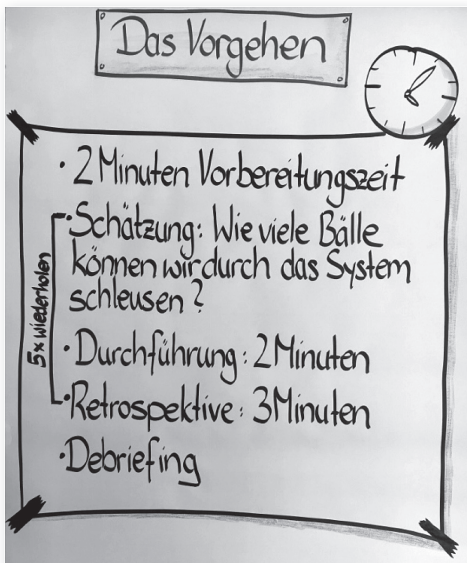 Das Vorgehen
· 2 Minuten Vorbereitungszeit
· Schätzung: Wie viele Bälle
können wir durch das System
schleusen?
· Durchführung: 2 Minuten
· Retrospektive: 3 Minuten
· Debriefing
5x wiederholen